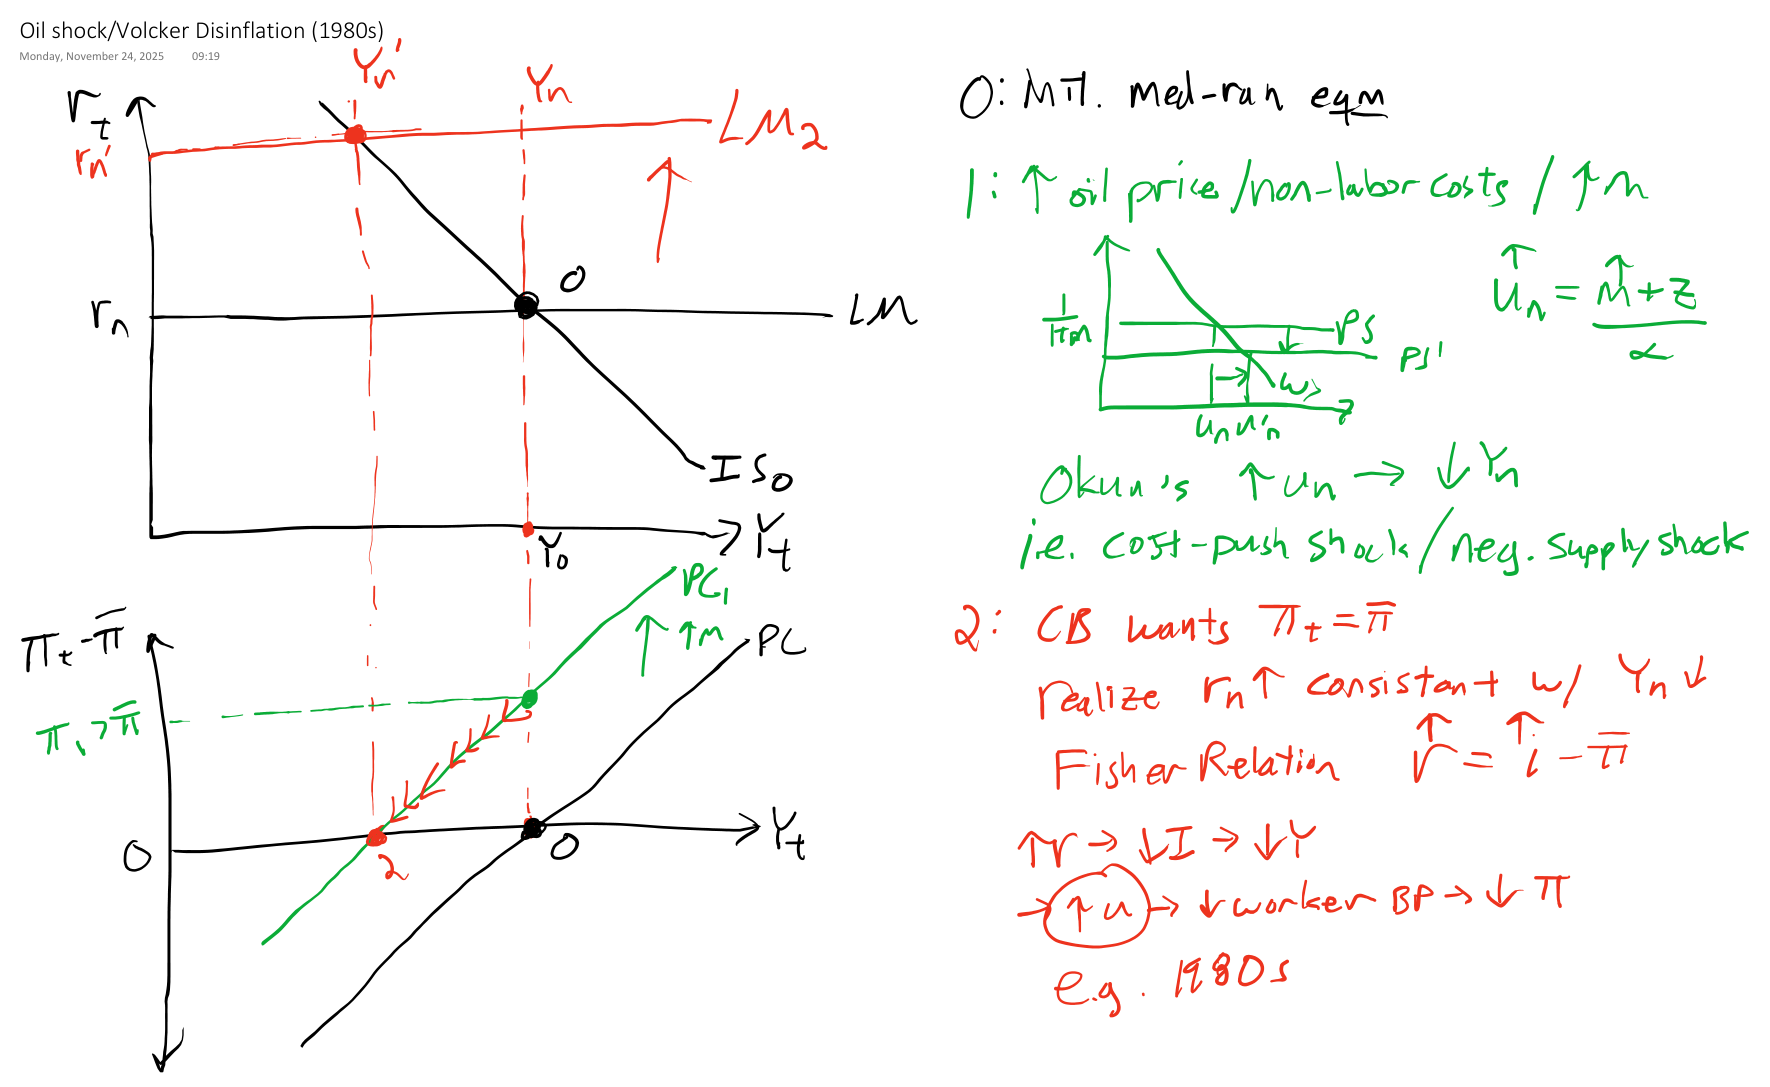 Oil shock/Volcker Disinflation (1980s)
Monday, November 24, 2025 09:19
Yn'
Yn
rt
rn'
LM2
O
rn
LM
ISO
Yt
Y0
PC1
↑m
PC
πt - π̄
π1 > π̄
O
2
O
Yt
0: Init. med-run eqm
1: ↑ oil price/non-labor costs / ↑m
1/1+m
PS
PS'
WS
un u'n
↑un = ↑m + z / α
Okun's ↑ un → ↓ Yn
i.e. cost-push shock/neg. supply shock
2: CB wants πt = π̄
realize rn ↑ consistant w/ Yn ↓
Fisher Relation ↑r = ↑i - π̄
↑r → ↓I → ↓Y
→ ↑u → ↓ worker BP → ↓ π
e.g. 1980s